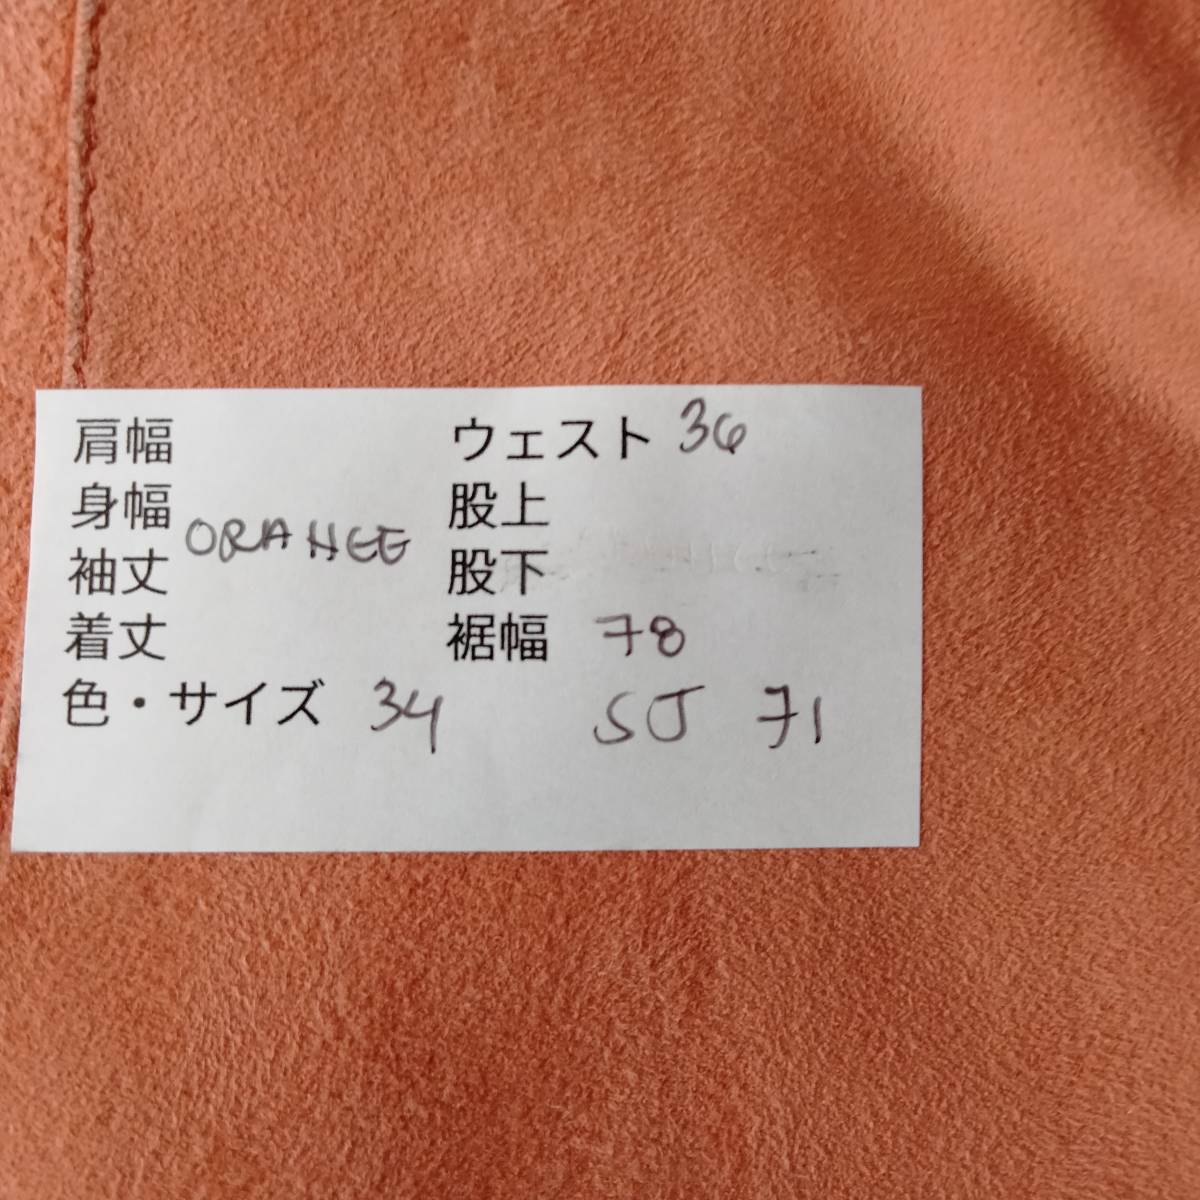 肩幅
身幅
ORANGE
袖丈
着丈
色・サイズ 34
ウェスト 36
股上
股下
裾幅 78
SJ 71